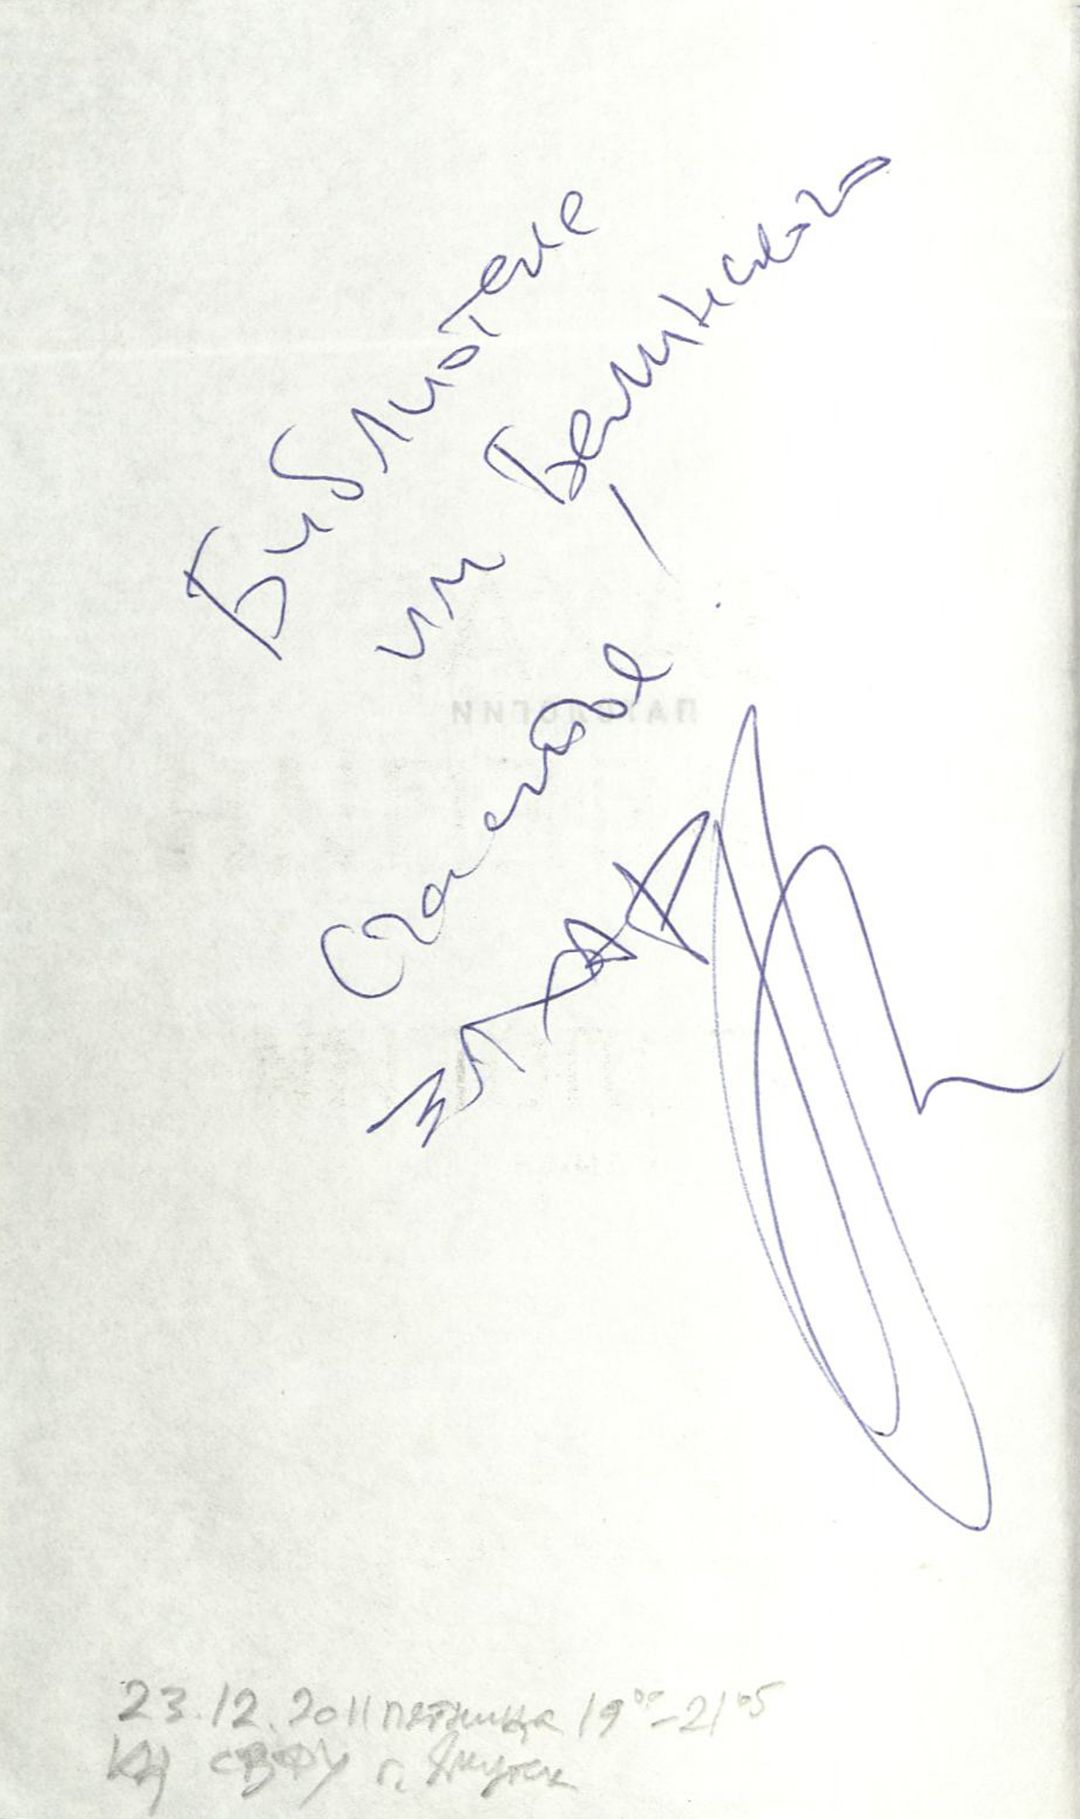 Библиотеке
им Белинского
Счастья!
Захар
23.12.2011 пятница 19⁰⁰-21⁰⁵
КЦ СВФУ г. Якутск